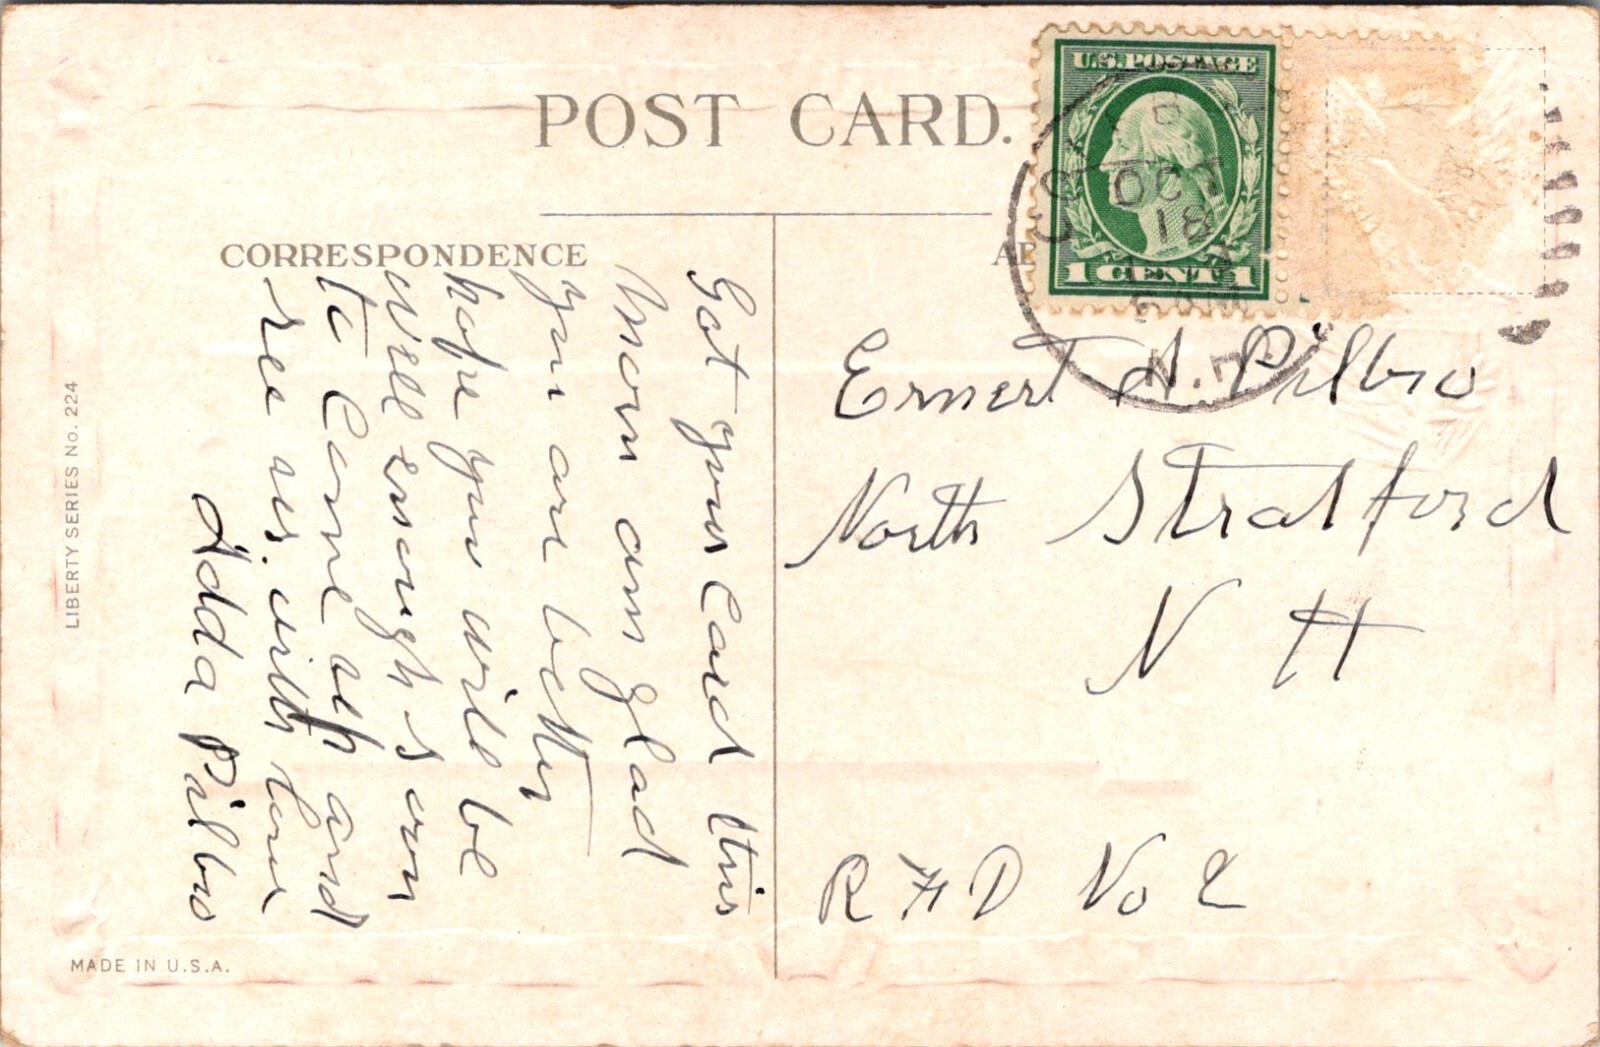 POST CARD.
CORRESPONDENCE
Got your Card this
morn am glad
you are better
hope you will be
well enough soon
to Come up and
see us. with love
Adda Pilbro
U.S. POSTAGE
1 CENT 1
OCT
18
N.H.
Ernest A. Pilbro
North Stratford
N H
R F D No 2
LIBERTY SERIES No. 224
MADE IN U.S.A.